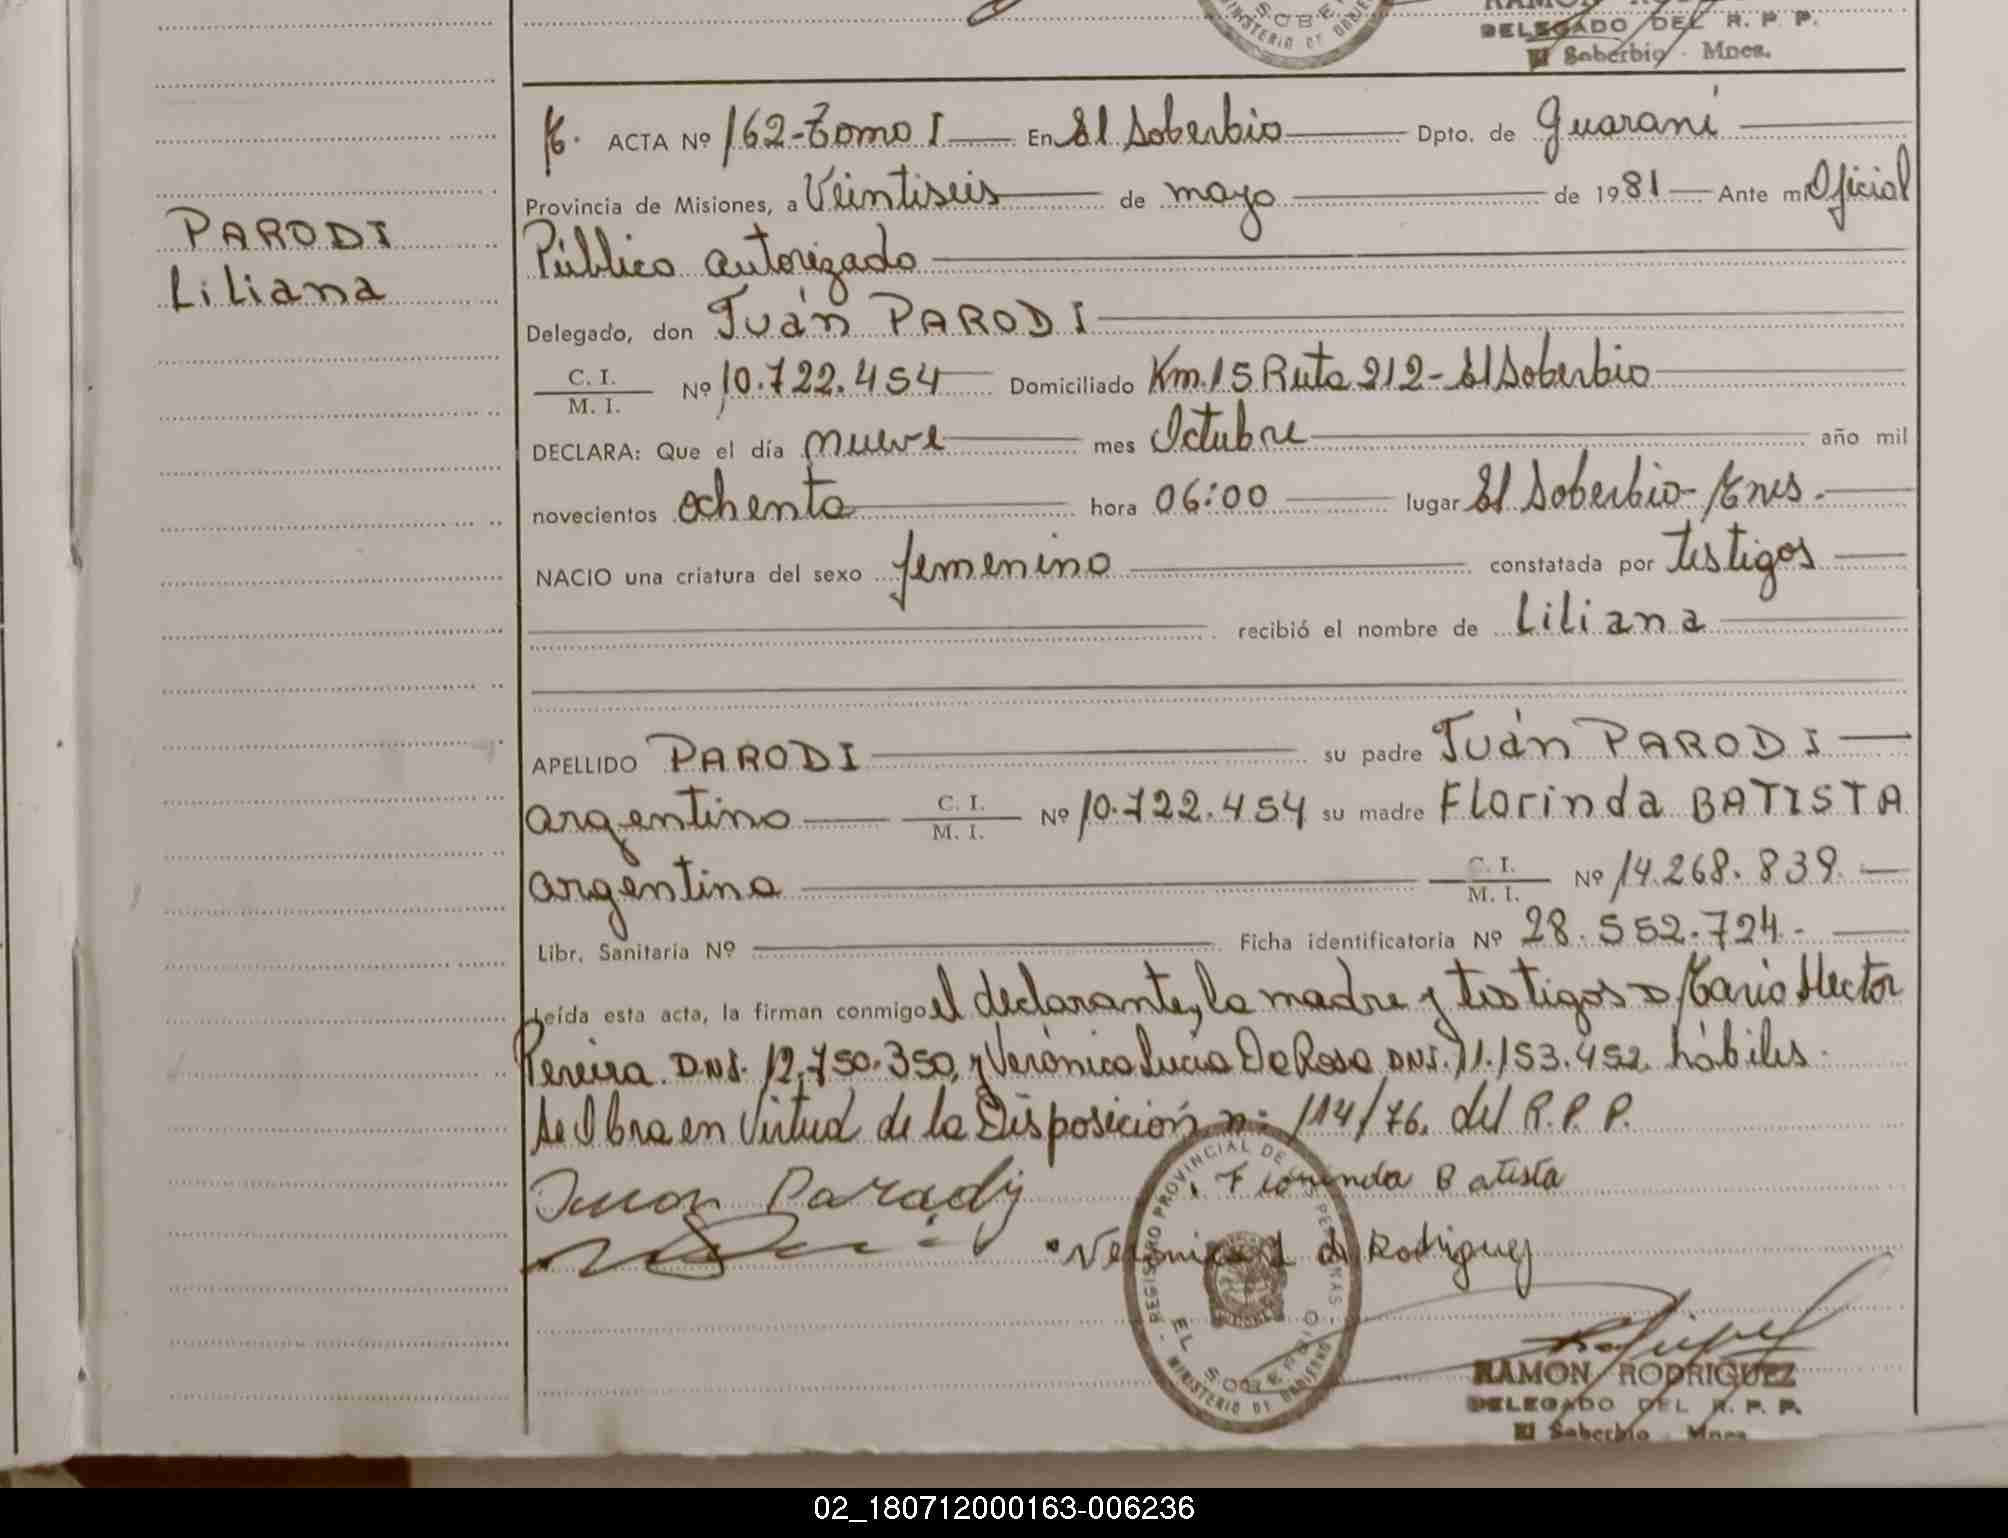 RAMON RODRIGUEZ
DELEGADO DEL R. P. P.
El Soberbio - Mnes.
SOBER
MINISTERIO DE GOBIERNO
ACTA Nº 162-Tomo I En El Soberbio Dpto. de Guaraní
Provincia de Misiones, a Veintiseis de mayo de 1981 Ante mi Oficial
Público autorizado
PARODI
Liliana
Delegado, don Juán PARODI
C. I.
M. I. Nº 10.722.454 Domiciliado Km.15 Ruta 212-El Soberbio
DECLARA: Que el día nueve mes Octubre año mil
novecientos ochenta hora 06:00 lugar El Soberbio-Mnes.
NACIO una criatura del sexo femenino constatada por testigos
recibió el nombre de Liliana
APELLIDO PARODI su padre Juán PARODI
argentino C. I. M. I. Nº 10.722.454 su madre Florinda BATISTA
argentina C. I. M. I. Nº 14.268.839.
Libr. Sanitaria Nº Ficha identificatoria Nº 28.552.724.-
Leída esta acta, la firman conmigo el declarante, la madre y testigos D Mario Hector
Pereira. DNI. 12.750.350, y Verónica Lucia Da Rosa DNI. 11.153.452. hábiles.
Se Obra en Virtud de la Disposición nº 114/76. del R.P.P.
Juan Parody
Florinda Batista
Veronica L d Rodriguez
REGISTRO PROVINCIAL DE LAS PERSONAS
EL SOBERBIO
MINISTERIO DE GOBIERNO
RAMON RODRIGUEZ
DELEGADO DEL R. P. P.
El Soberbio - Mnes.
02_180712000163-006236